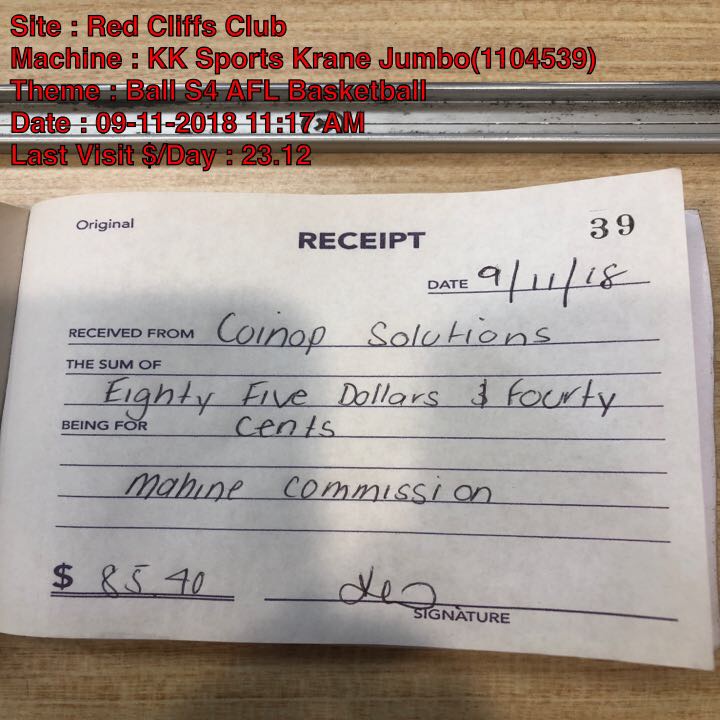 Site : Red Cliffs Club
Machine : KK Sports Krane Jumbo(1104539)
Theme : Ball S4 AFL Basketball
Date : 09-11-2018 11:17 AM
Last Visit $/Day : 23.12
Original
39
RECEIPT
DATE 9/11/18
RECEIVED FROM Coinop Solutions
THE SUM OF
Eighty Five Dollars & fourty
BEING FOR cents
mahine commission
$ 85.40
SIGNATURE